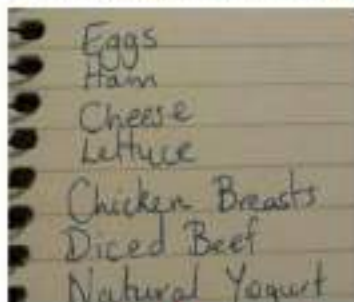 Eggs
Ham
Cheese
Lettuce
Chicken Breasts
Diced Beef
Natural Yogurt